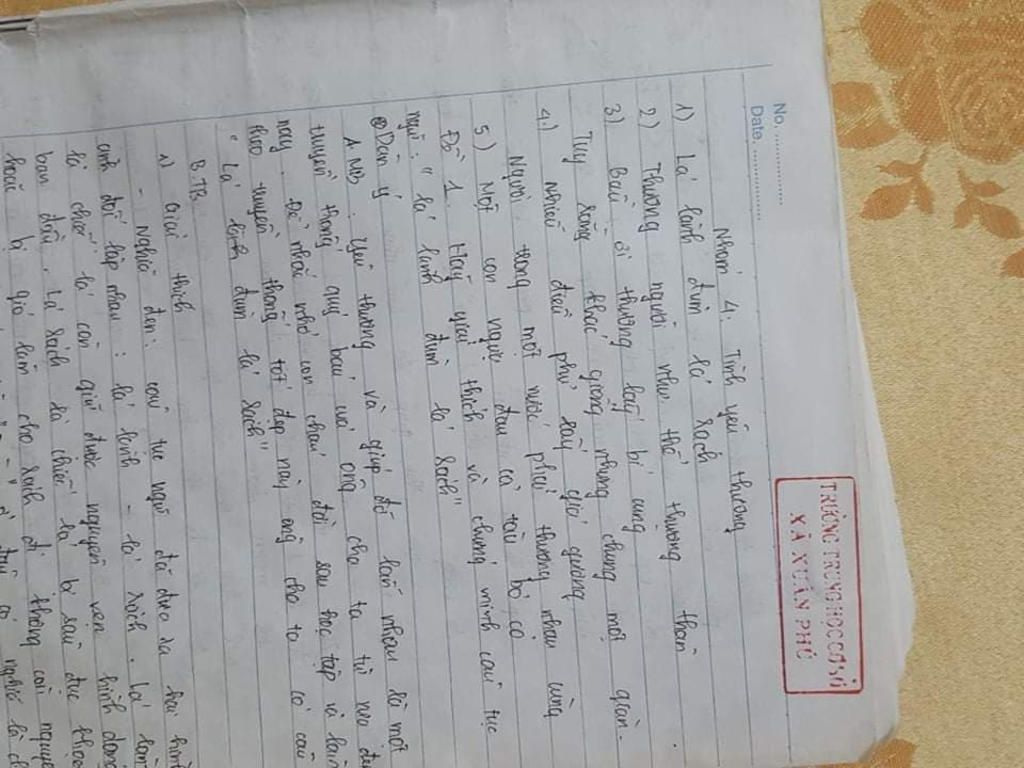 No.
Date
TRƯỜNG TRUNG HỌC CƠ SỞ
XÃ XUÂN PHÚ
Nhóm 4: Tình yêu thương
1) Lá lành đùm lá rách
2) Thương người như thể thương thân
3) Bầu ơi thương lấy bí cùng
Tuy rằng khác giống nhưng chung một giàn.
4) Nhiễu điều phủ lấy giá gương
Người trong một nước phải thương nhau cùng
5) Một con ngựa đau cả tàu bỏ cỏ
Đề 1 Hãy giải thích và chứng minh câu tục
ngữ: "lá lành đùm lá rách"
Dàn ý
A MB. Yêu thương và giúp đỡ lẫn nhau là một
truyền thống quý báu mà ông cha ta từ xưa
nay. Để nhắc nhở con cháu đời sau học tập và
theo truyền thống tốt đẹp này ông cha ta có câu
"Lá lành đùm lá rách"
B. TB
1) Giải thích
- Nghĩa đen: câu tục ngữ đã đưa ra hai
ảnh đối lập nhau: lá lành - lá rách. Lá
là chiếc lá còn giữ được nguyên vẹn hình dạng
ban đầu. Lá rách là chiếc lá bị sâu đục
hoặc bị gió làm cho rách đi không còn